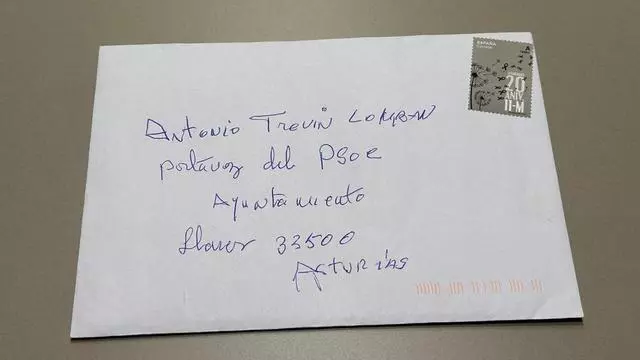 ESPAÑA
20
ANIV
11-M
Antonio Trevin Lomban
portavoz del PSOE
Ayuntamiento
Llanes 33500
Asturias